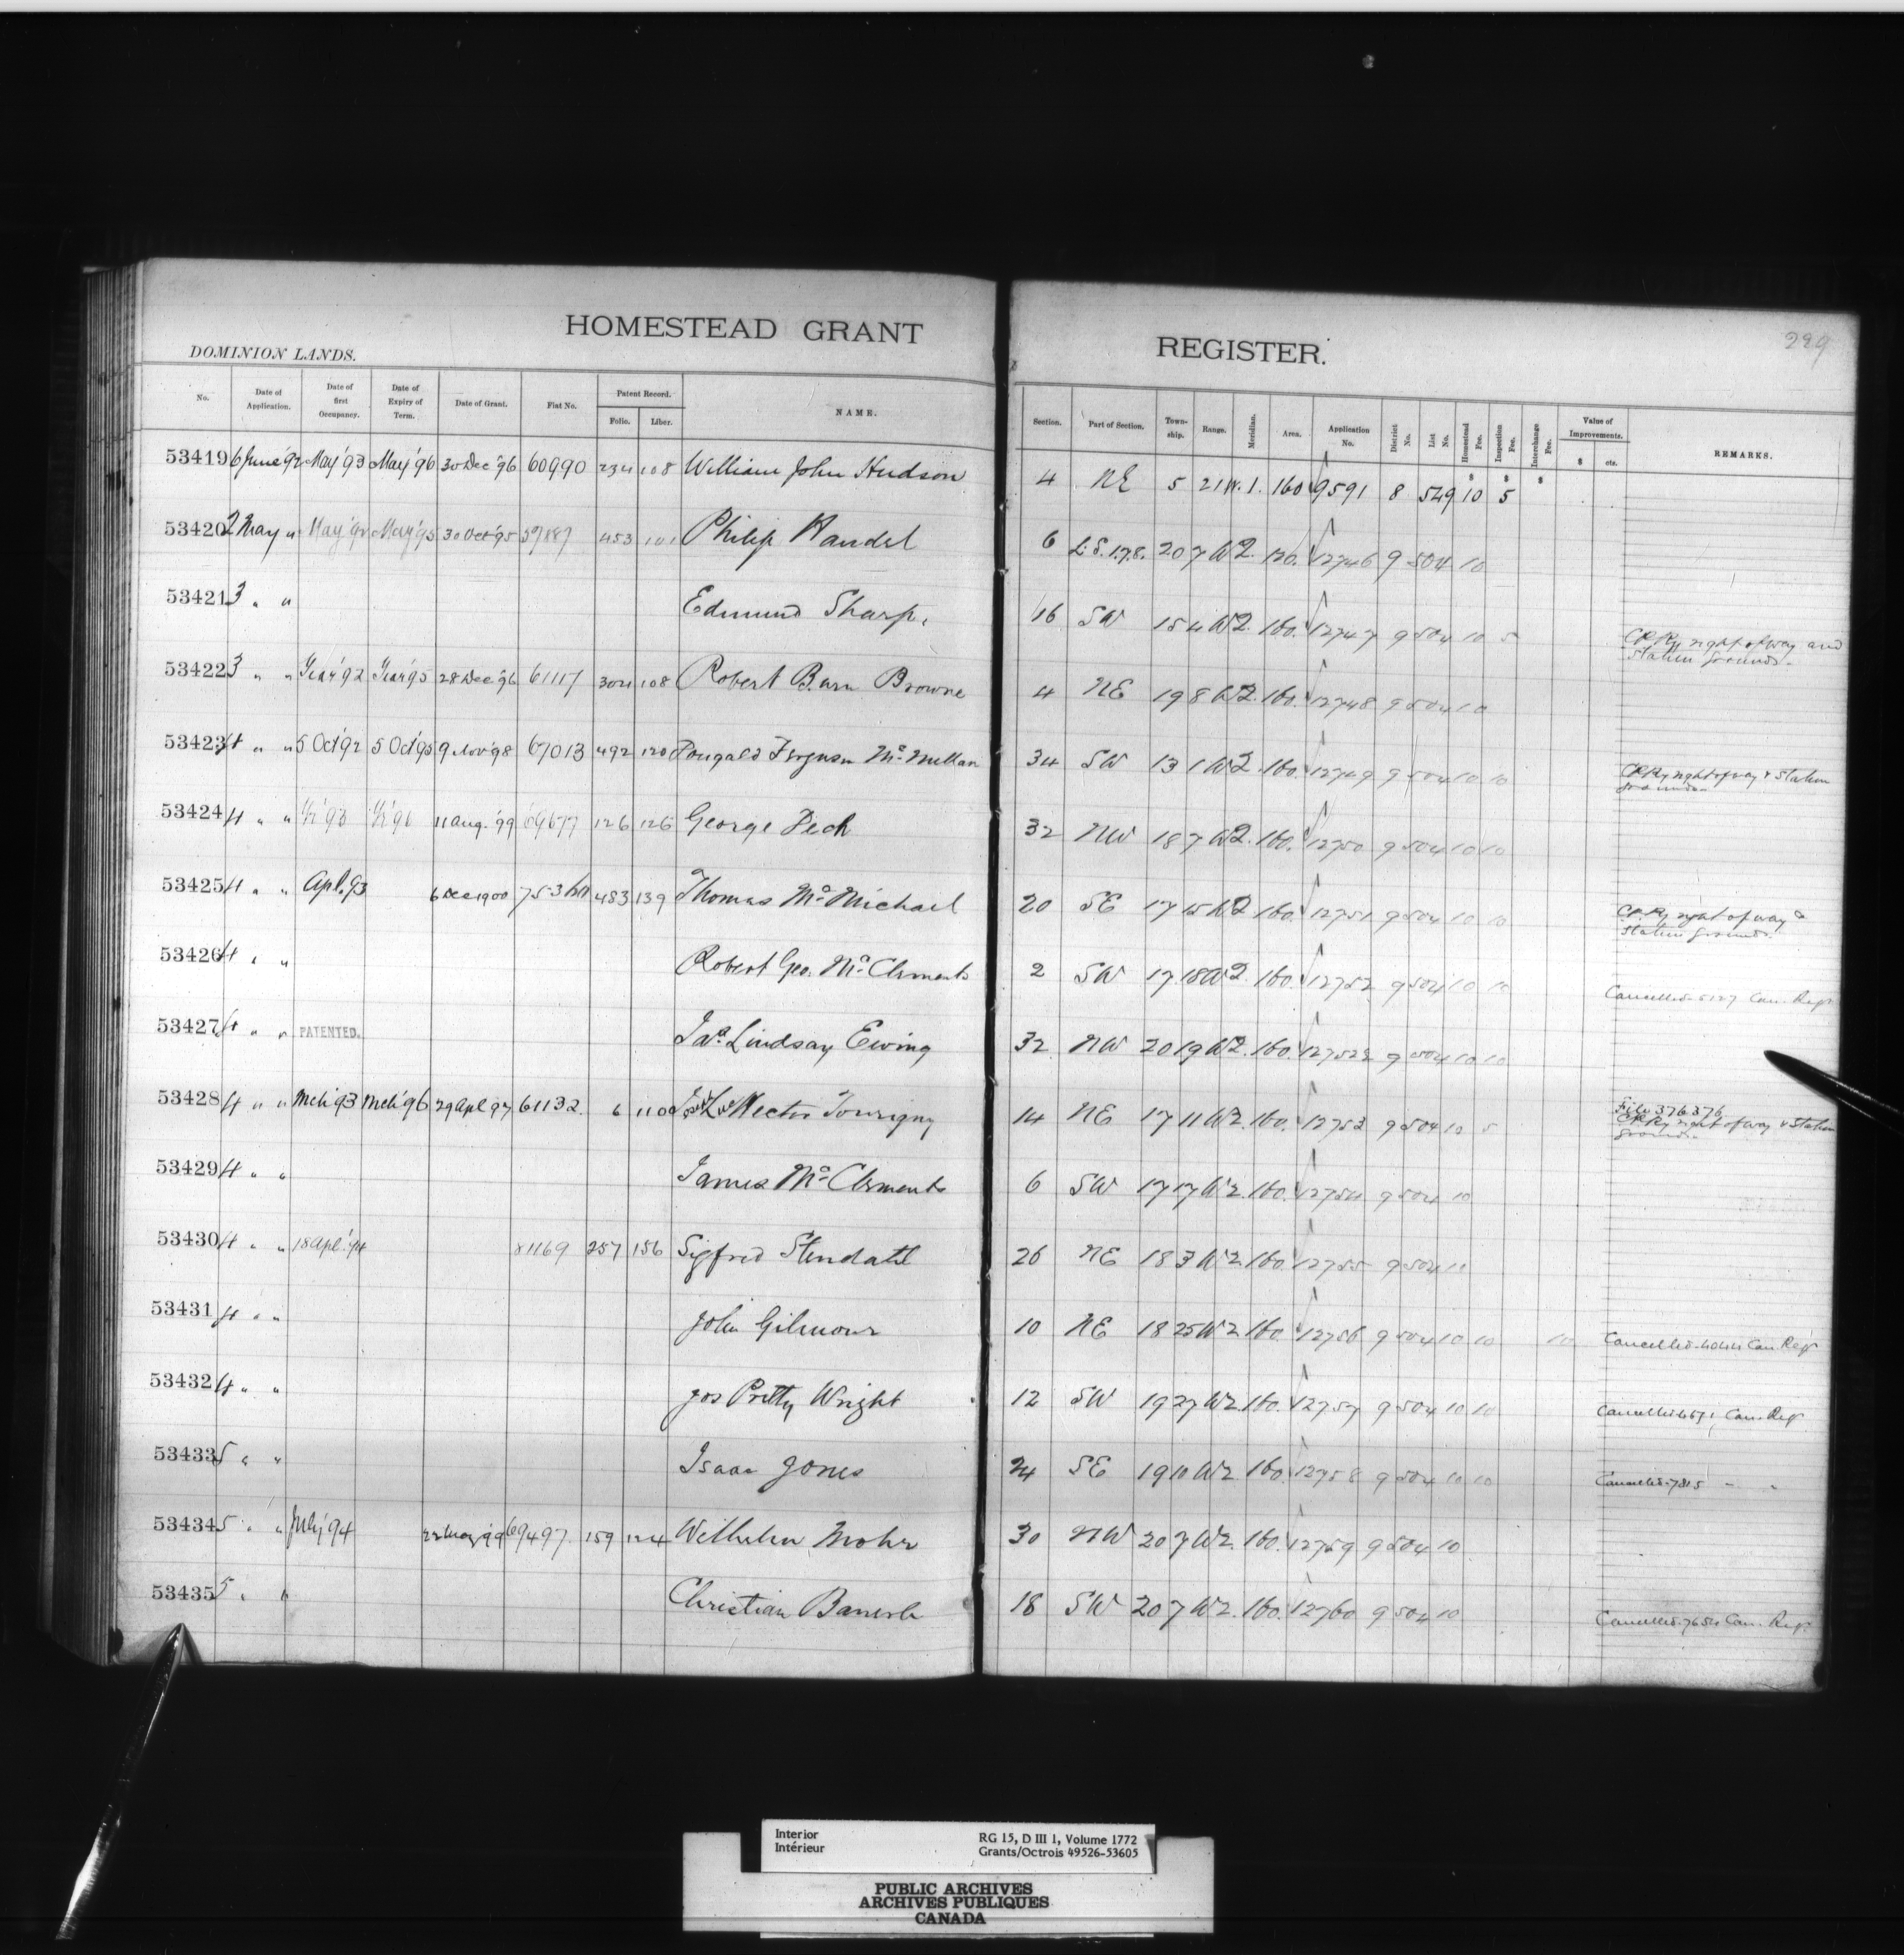 299
HOMESTEAD GRANT REGISTER.
DOMINION LANDS.
No. Date of Application. Date of first Occupancy. Date of Expiry of Term. Date of Grant. Fiat No. Patent Record. Folio. Liber. NAME. Section. Part of Section. Town-ship. Range. Meridian. Area. Application No. District No. List No. Homestead Fee. Inspection Fee. Interchange Fee. Value of Improvements. $ cts. REMARKS.
53419 6 June '92 May '93 May '96 30 Dec '96 60990 234 108 William John Hudson 4 NE 5 21 W.1. 160 9591 8 549 10 5
53420 2 May " May '92 May '95 30 Oct '95 57887 453 101 Philip Handel 6 L.S. 1.7.8. 20 7 W2. 120. 12746 9 504 10
53421 3 " " Edmund Sharp. 16 SW 15 4 W2. 160. 12747 9 504 10 5
CP Ry right of way and
Station Grounds.
53422 3 " " '92 '95 28 Dec '96 61117 304 108 Robert Burn Browne 4 NE 19 8 W2. 160. 12748 9 504 10
53423 4 " " 5 Oct '92 5 Oct '95 9 Nov '98 67013 492 120 Dougald Ferguson McMillan 34 SW 13 1 W2. 160. 12749 9 504 10 10
CP Ry right of way & Station
grounds.
53424 4 " " '93 '96 11 Aug. '99 69677 126 126 George Pech 32 NW 18 7 W2. 160. 12750 9 504 10 10
53425 4 " " Apl. 93 6 Dec 1900 483 139 Thomas McMichael 20 SE 17 15 W2 160. 12751 9 504 10 10
CP. Ry right of way &
Station grounds.
53426 4 " " Robert Geo. McClements 2 SW 17 18 W2. 160. 12752 9 504 10 10
Cancelled-5127 Can. Regr
53427 4 " " PATENTED. Jas. Lindsay Ewing 32 NW 20 19 W2. 160. 12752½ 9 504 10 10
53428 4 " " Mch '93 Mch '96 29 Apl 97 61132. 6 110 Hector Tourigny 14 NE 17 11 W2. 160. 12753 9 504 10 5
File 376376
CP Ry right of way & Station
grounds.
53429 4 " " James McClements 6 SW 17 17 W2. 160. 12754 9 504 10
53430 4 " " 18 Apl. '94 81169 257 156 Sigfred Stendahl 26 NE 18 3 W2 160 12755 9 504 10
53431 4 " " John Gilmour 10 NE 18 25 W2 160. 12756 9 504 10 10 10
Cancelled-4044 Can. Regr
53432 4 " " Jos Pretty Wright 12 SW 19 27 W2. 160. 12757 9 504 10 10
Cancelled Can. Regr
53433 5 " " Isaac Jones 24 SE 19 10 W2 160. 12758 9 504 10 10
Cancelled-7815 " "
53434 5 " " July '94 22 May '99 69497. 159 124 Wilhelm Mohr 30 NW 20 7 W2. 160. 12759 9 504 10
53435 5 " " Christian 18 SW 20 7 W2. 160. 12760 9 504 10
Cancelled-7654 Can. Regr.
Interior RG 15, D III 1, Volume 1772
Intérieur Grants/Octrois 49526-53605
PUBLIC ARCHIVES
ARCHIVES PUBLIQUES
CANADA